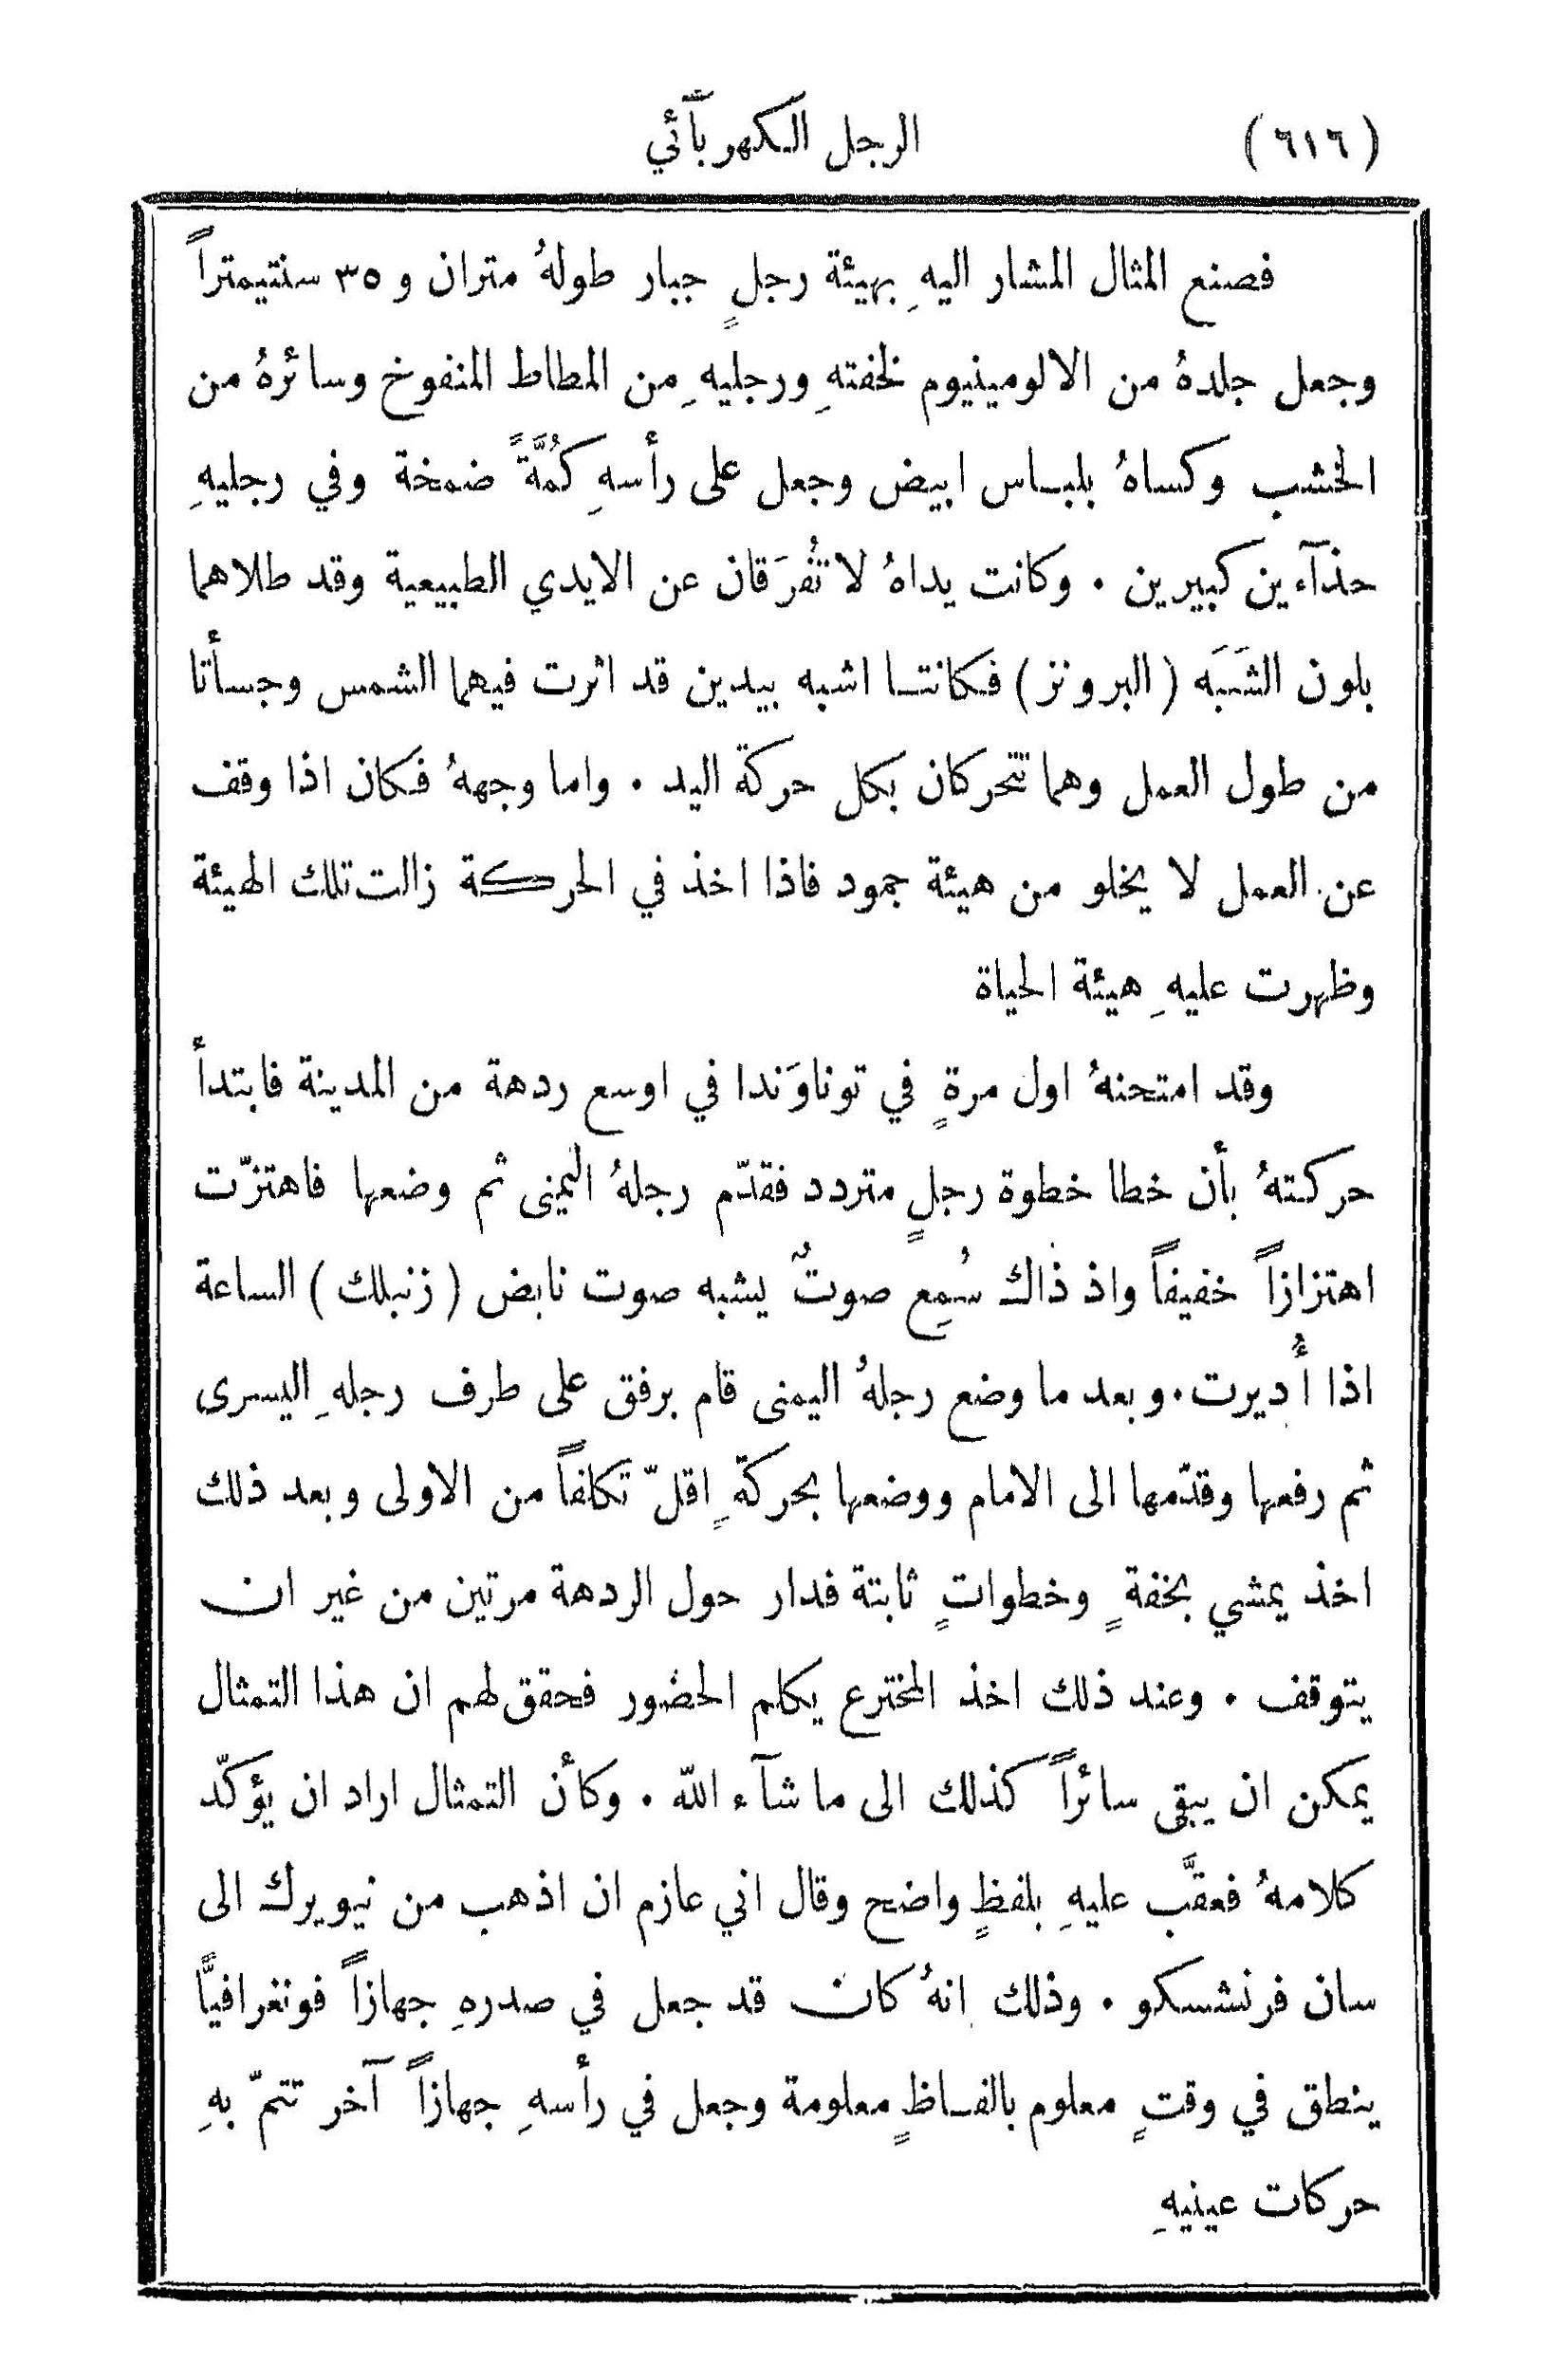 (٦١٦) الرجل الكهربآئي
فصنع المثال المشار اليهِ بهيئة رجلٍ جبار طولهُ متران و ٣٥ سنتيمتراً
وجعل جلدهُ من الالومينيوم لخفتهِ ورجليهِ من المطاط المنفوخ وسائرهُ من
الخشب وكساهُ بلباس ابيض وجعل على رأسهِ كُمَّةً ضمخة وفي رجليهِ
حذآءين كبيرين . وكانت يداهُ لا تُفرَقان عن الايدي الطبيعية وقد طلاهما
بلون الشَبَه (البرونز) فكانتا اشبه بيدين قد اثرت فيهما الشمس وجسأتا
من طول العمل وهما تتحركان بكل حركة اليد . واما وجههُ فكان اذا وقف
عن العمل لا يخلو من هيئة جمود فاذا اخذ في الحركة زالت تلك الهيئة
وظهرت عليهِ هيئة الحياة
وقد امتحنهُ اول مرةٍ في توناوَندا في اوسع ردهة من المدينة فابتدأ
حركتهُ بأن خطا خطوة رجلٍ متردد فقدّم رجلهُ اليمنى ثم وضعها فاهتزّت
اهتزازاً خفيفاً واذ ذاك سُمِع صوتٌ يشبه صوت نابض (زنبلك) الساعة
اذا أُديرت . وبعد ما وضع رجلهُ اليمنى قام برفق على طرف رجلهِ اليسرى
ثم رفعها وقدّمها الى الامام ووضعها بحركةٍ اقلّ تكلفاً من الاولى وبعد ذلك
اخذ يمشي بخفةٍ وخطواتٍ ثابتة فدار حول الردهة مرتين من غير ان
يتوقف . وعند ذلك اخذ المخترع يكلم الحضور فحقق لهم ان هذا التمثال
يمكن ان يبقى سائراً كذلك الى ما شآء اللّه . وكأن التمثال اراد ان يؤكّد
كلامهُ فعقَّب عليهِ بلفظٍ واضح وقال اني عازم ان اذهب من نيويرك الى
سان فرنشسكو . وذلك انهُ كان قد جعل في صدرهِ جهازاً فونغرافيًّا
ينطق في وقتٍ معلوم بالفاظٍ معلومة وجعل في رأسهِ جهازاً آخر تتمّ بهِ
حركات عينيهِ